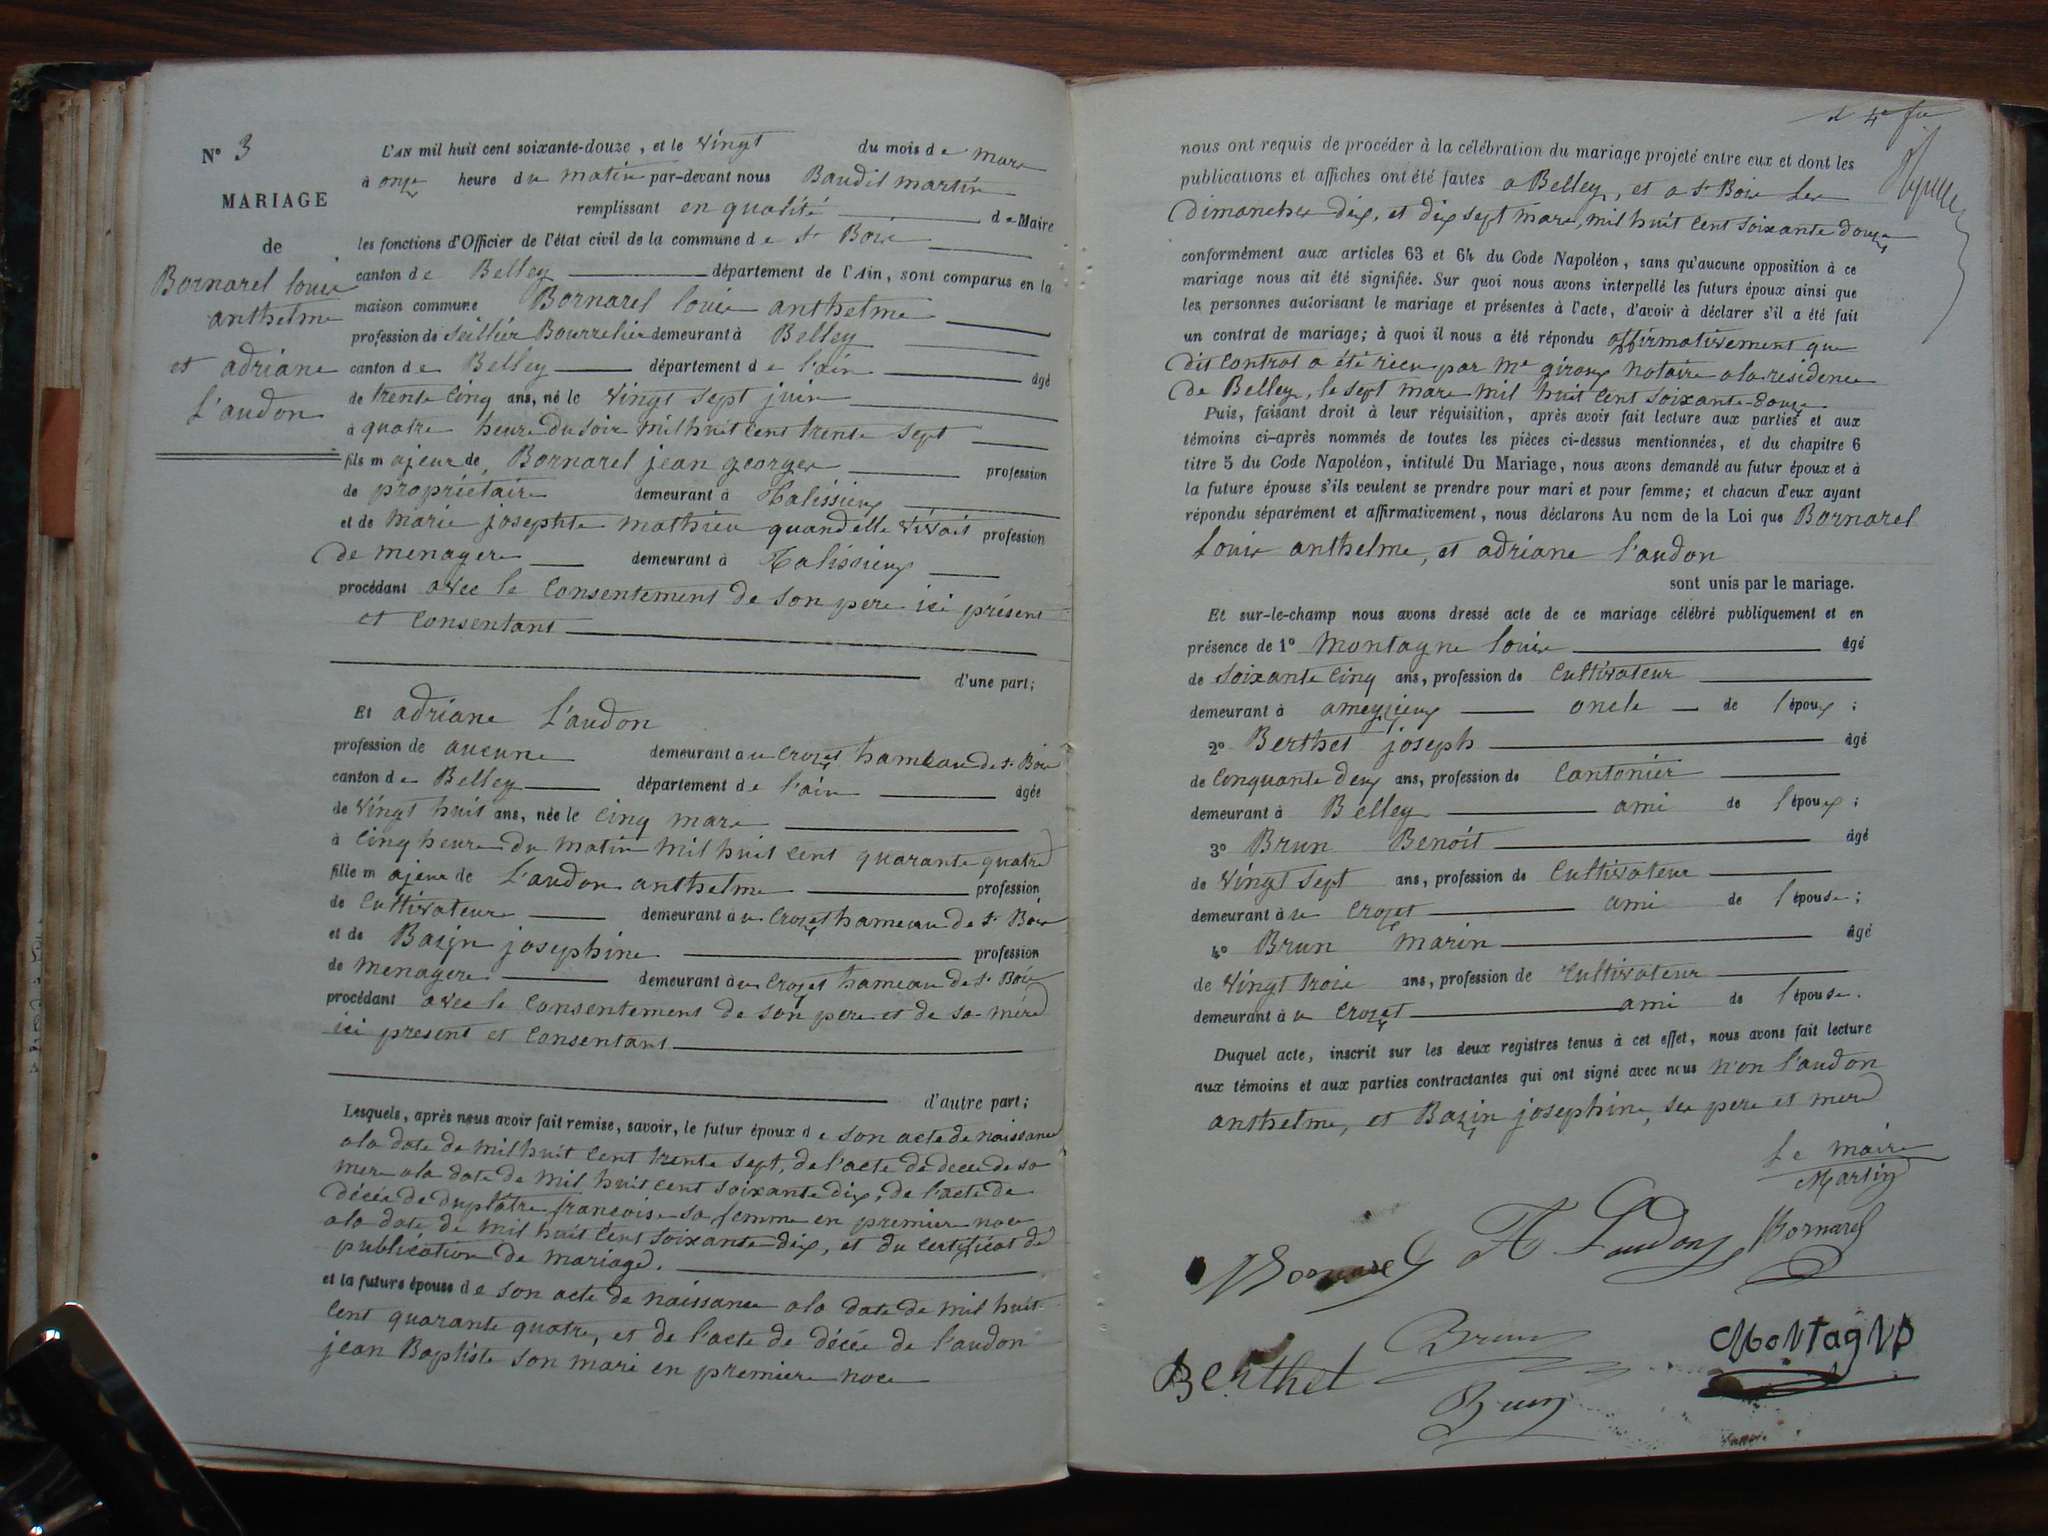 N° 3
MARIAGE
de
Bornarel louis
anthelme
et adriane
L'audon
L'AN mil huit cent soixante-douze, et le vingt du mois de mars
à onze heure du matin par-devant nous Baudit martin
remplissant en qualité de Maire
les fonctions d'Officier de l'état civil de la commune de st Bois
canton de Belley département de l'Ain, sont comparus en la
maison commune Bornarel louis anthelme
profession de Seillier Bourrelier demeurant à Belley
canton de Belley département de l'ain âgé
de trente cinq ans, né le vingt sept juin
à quatre heure du soir mil huit cent trente sept
fils majeur de, Bornarel jean georges profession
de proprietaire demeurant à Talissieux
et de marie josephte mathieu quand elle vivait profession
de menagere demeurant à Talissieux
procédant avec le Consentement de son pere ici présent
et Consentant
d'une part;
Et adriane L'audon
profession de aucune demeurant au crozet hameau de st Bois
canton de Belley département de l'ain âgée
de vingt huit ans, née le cinq mars
à cinq heure du matin mil huit cent quarante quatre
fille majeure de L'audon anthelme profession
de Cultivateur demeurant au Crozet hameau de st Bois
et de Bazin josephine profession
de menagere demeurant au crozet hameau de st Bois
procédant avec le consentement de son pere et de sa mére
ici present et consentant
d'autre part;
Lesquels, après nous avoir fait remise, savoir, le futur époux de son acte de naissance
a la date de mil huit cent trente sept, de l'acte de decee de sa
mere a la date de mil huit cent soixante dix, de l'acte de
décée de Duplatre francoise sa femme en premiere noce
a la date de mil huit cent soixante dix, et du certificat de
publication de mariage.
et la future épouse de son acte de naissance a la date de mil huit
cent quarante quatre, et de l'acte de décée de l'audon
jean Baptiste son mari en premiere noce
nous ont requis de procéder à la célébration du mariage projeté entre eux et dont les
publications et affiches ont été faites a Belley, et a st Bois les
dimanches dix, et dix sept mars, mil huit cent soixante douze
conformément aux articles 63 et 64 du Code Napoléon, sans qu'aucune opposition à ce
mariage nous ait été signifiée. Sur quoi nous avons interpellé les futurs époux ainsi que
les personnes autorisant le mariage et présentes à l'acte, d'avoir à déclarer s'il a été fait
un contrat de mariage; à quoi il nous a été répondu affirmativement que
dit Contrat a été ricu par me giroux notaire a la residence
de Belley, le sept mars mil huit cent soixante-douze
Puis, faisant droit à leur réquisition, après avoir fait lecture aux parties et aux
témoins ci-après nommés de toutes les pièces ci-dessus mentionnées, et du chapitre 6
titre 5 du Code Napoléon, intitulé Du Mariage, nous avons demandé au futur époux et à
la future épouse s'ils veulent se prendre pour mari et pour femme; et chacun d'eux ayant
répondu séparément et affirmativement, nous déclarons Au nom de la Loi que Bornarel
Louis anthelme, et adriane l'audon
sont unis par le mariage.
Et sur-le-champ nous avons dressé acte de ce mariage célébré publiquement et en
présence de 1° Montagne louis âgé
de soixante cinq ans, profession de Cultivateur
demeurant à ameyzieux oncle de l'époux;
2° Berthet joseph âgé
de Cinquante deux ans, profession de Cantonier
demeurant à Belley ami de l'époux;
3° Brun Benoit âgé
de vingt sept ans, profession de Cultivateur
demeurant au Crozet ami de l'épouse;
4° Brun marin âgé
de vingt trois ans, profession de Cultivateur
demeurant au Crozet ami de l'épouse.
Duquel acte, inscrit sur les deux registres tenus à cet effet, nous avons fait lecture
aux témoins et aux parties contractantes qui ont signé avec nous n'on l'audon
anthelme, et Bazin josephine, ses pere et mere
Le maire
Martin
Bornarel A Laudon Bornarel
Brun Montagne
Berthet
Brun